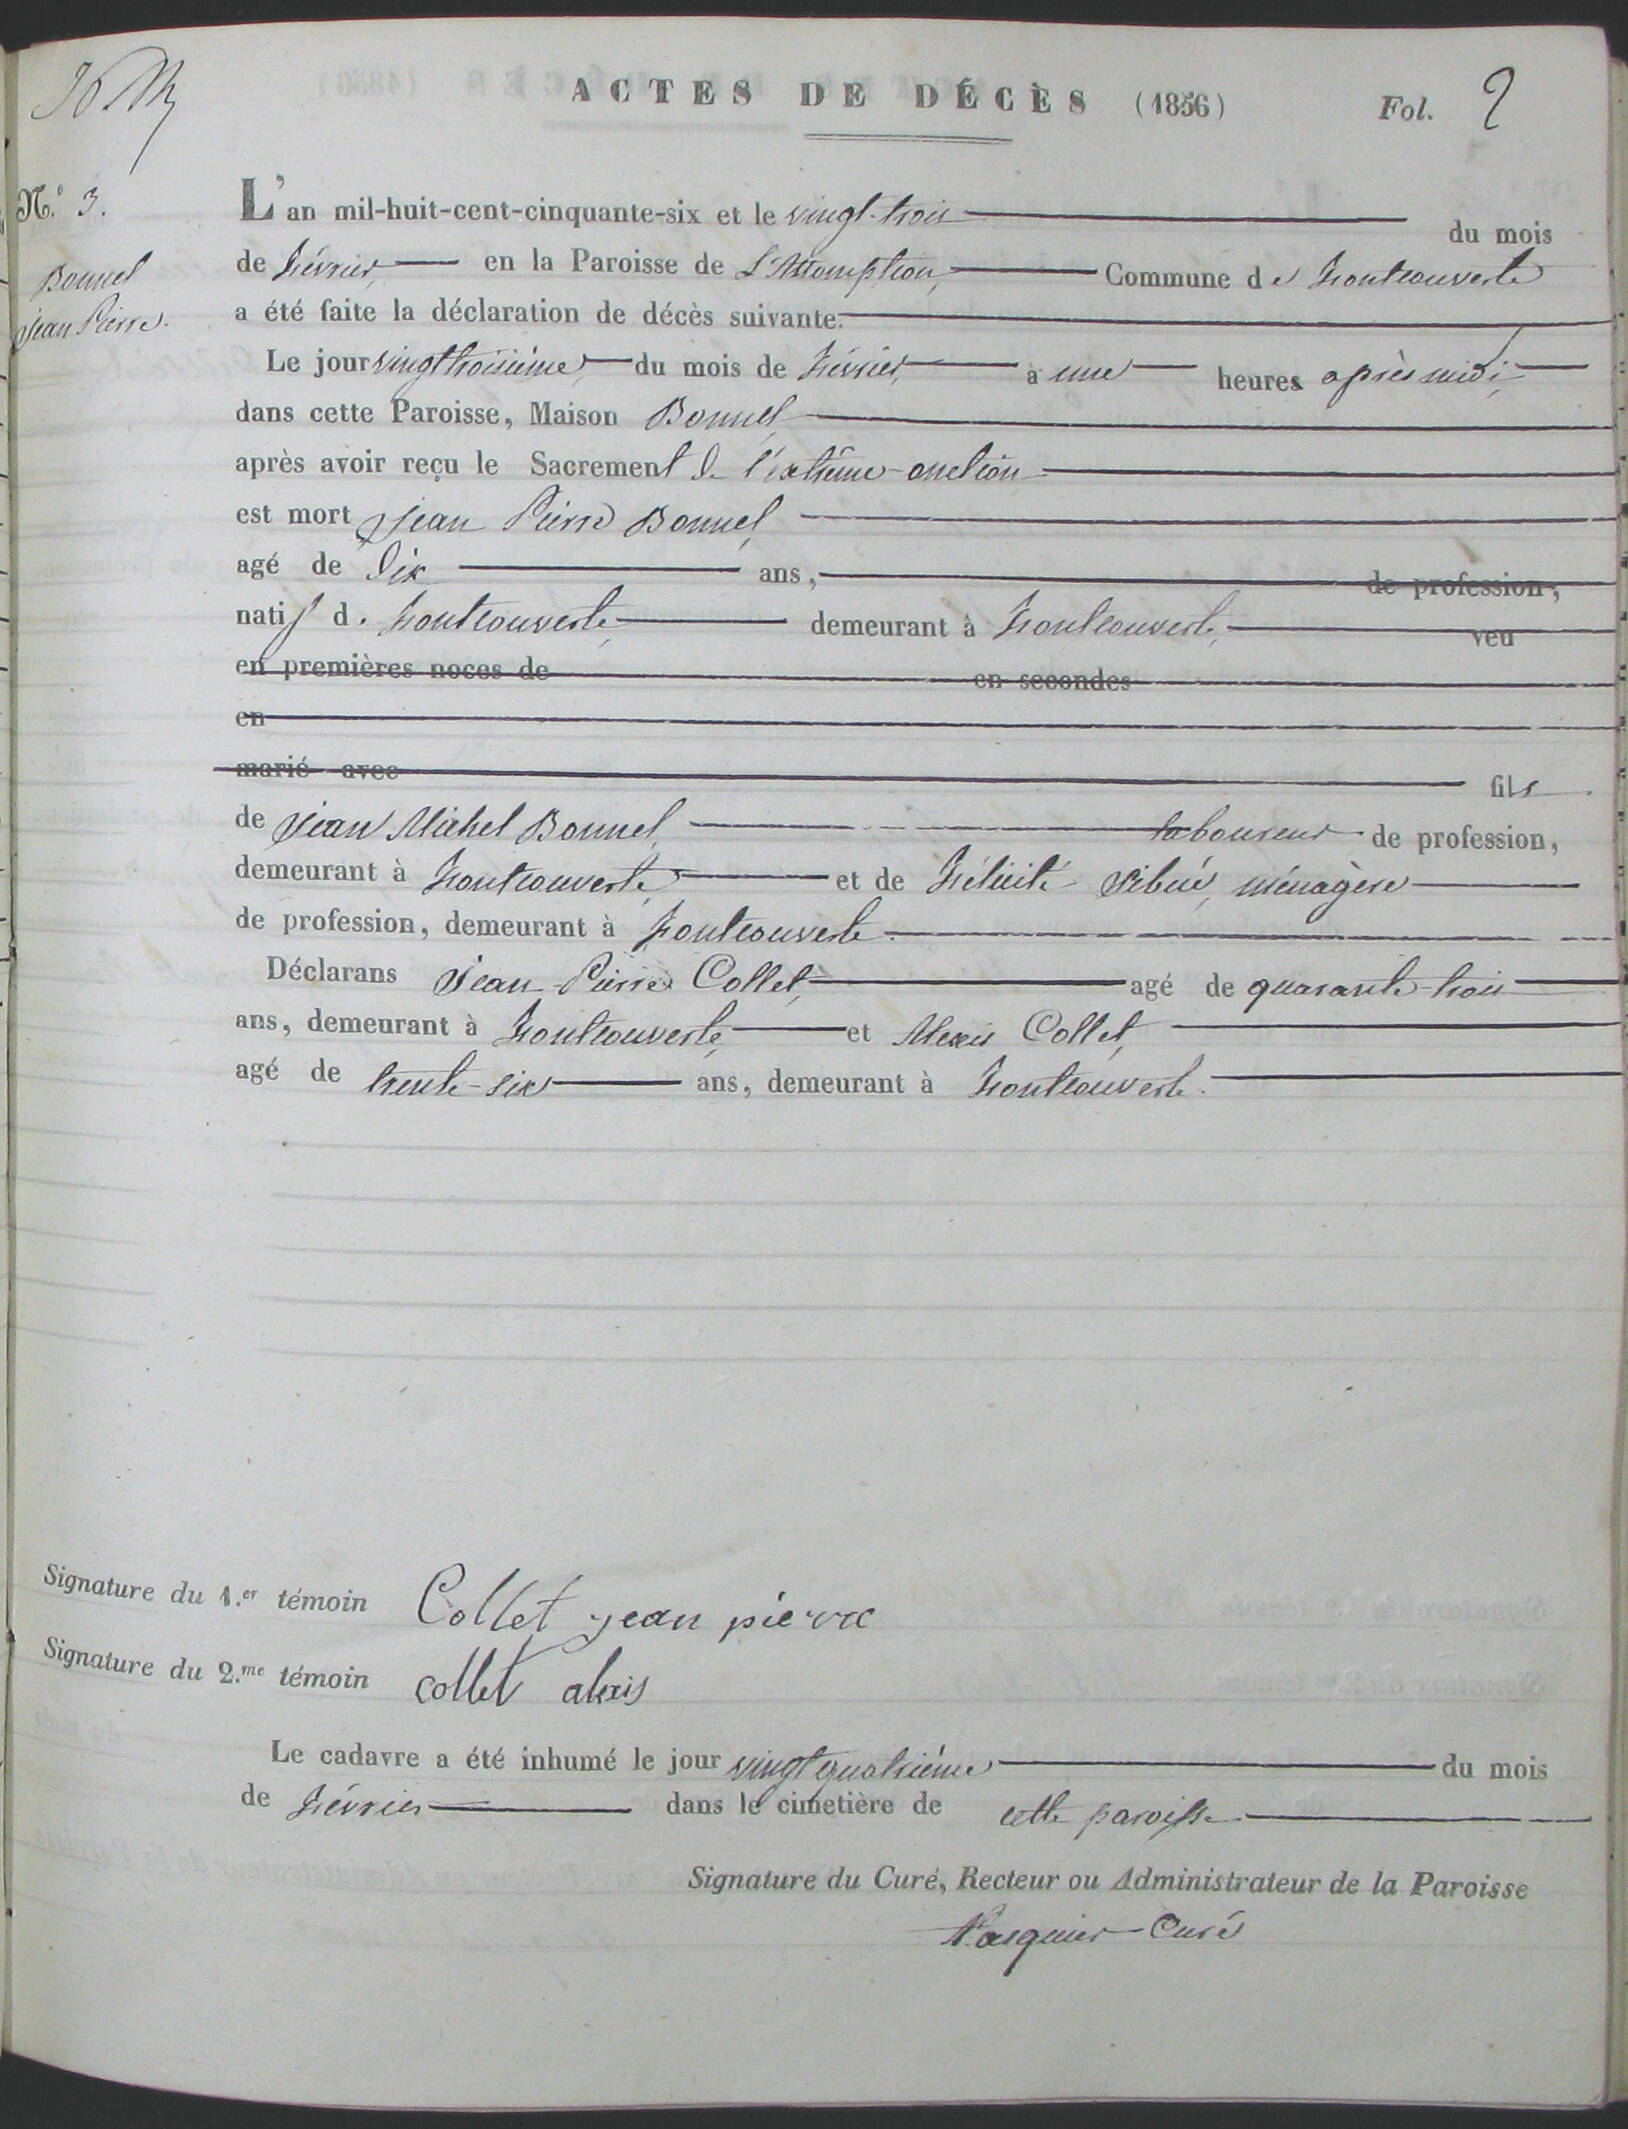 ACTES DE DÉCÈS (1856) Fol. 2
N.° 3.
Bonnel
Jean Pierre.
L'an mil-huit-cent-cinquante-six et le vingt-trois du mois
de février, en la Paroisse de L'Assomption, Commune de Fontcouverte
a été faite la déclaration de décès suivante.
Le jour vingt troisième, du mois de février, à une heures après midi,
dans cette Paroisse, Maison Bonnel,
après avoir reçu le Sacrement de l'extrême-onction
est mort Jean Pierre Bonnel,
agé de dix ans, de profession,
natif d. Fontcouverte, demeurant à Fontcouverte, veu
en premières noces de en secondes
en
marié avec fils
de Jean Michel Bonnel, laboureur de profession,
demeurant à Fontcouverte, et de Félicité Sibué, ménagère
de profession, demeurant à Fontcouverte.
Déclarans Jean-Pierre Collet, agé de quarante-trois
ans, demeurant à Fontcouverte, et Alexis Collet,
agé de trente-six ans, demeurant à Fontcouverte.
Signature du 1.er témoin Collet jean pierre
Signature du 2.me témoin collet alexis
Le cadavre a été inhumé le jour vingt quatrième du mois
de février dans le cimetière de cette paroisse
Signature du Curé, Recteur ou Administrateur de la Paroisse
Pasquier Curé